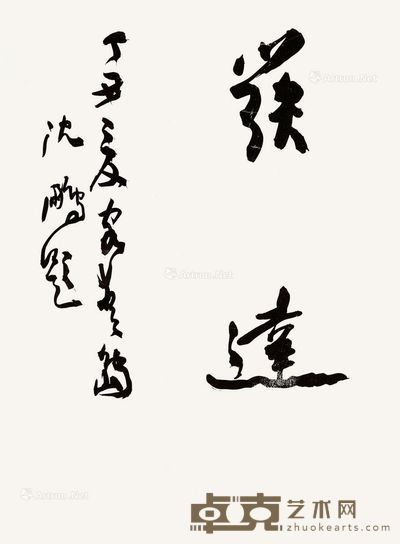 發達
丁丑之夏
沈鵬題
Artron.Net
Artron.Net
Artron.Net
卓克艺术网
zhuokearts.com